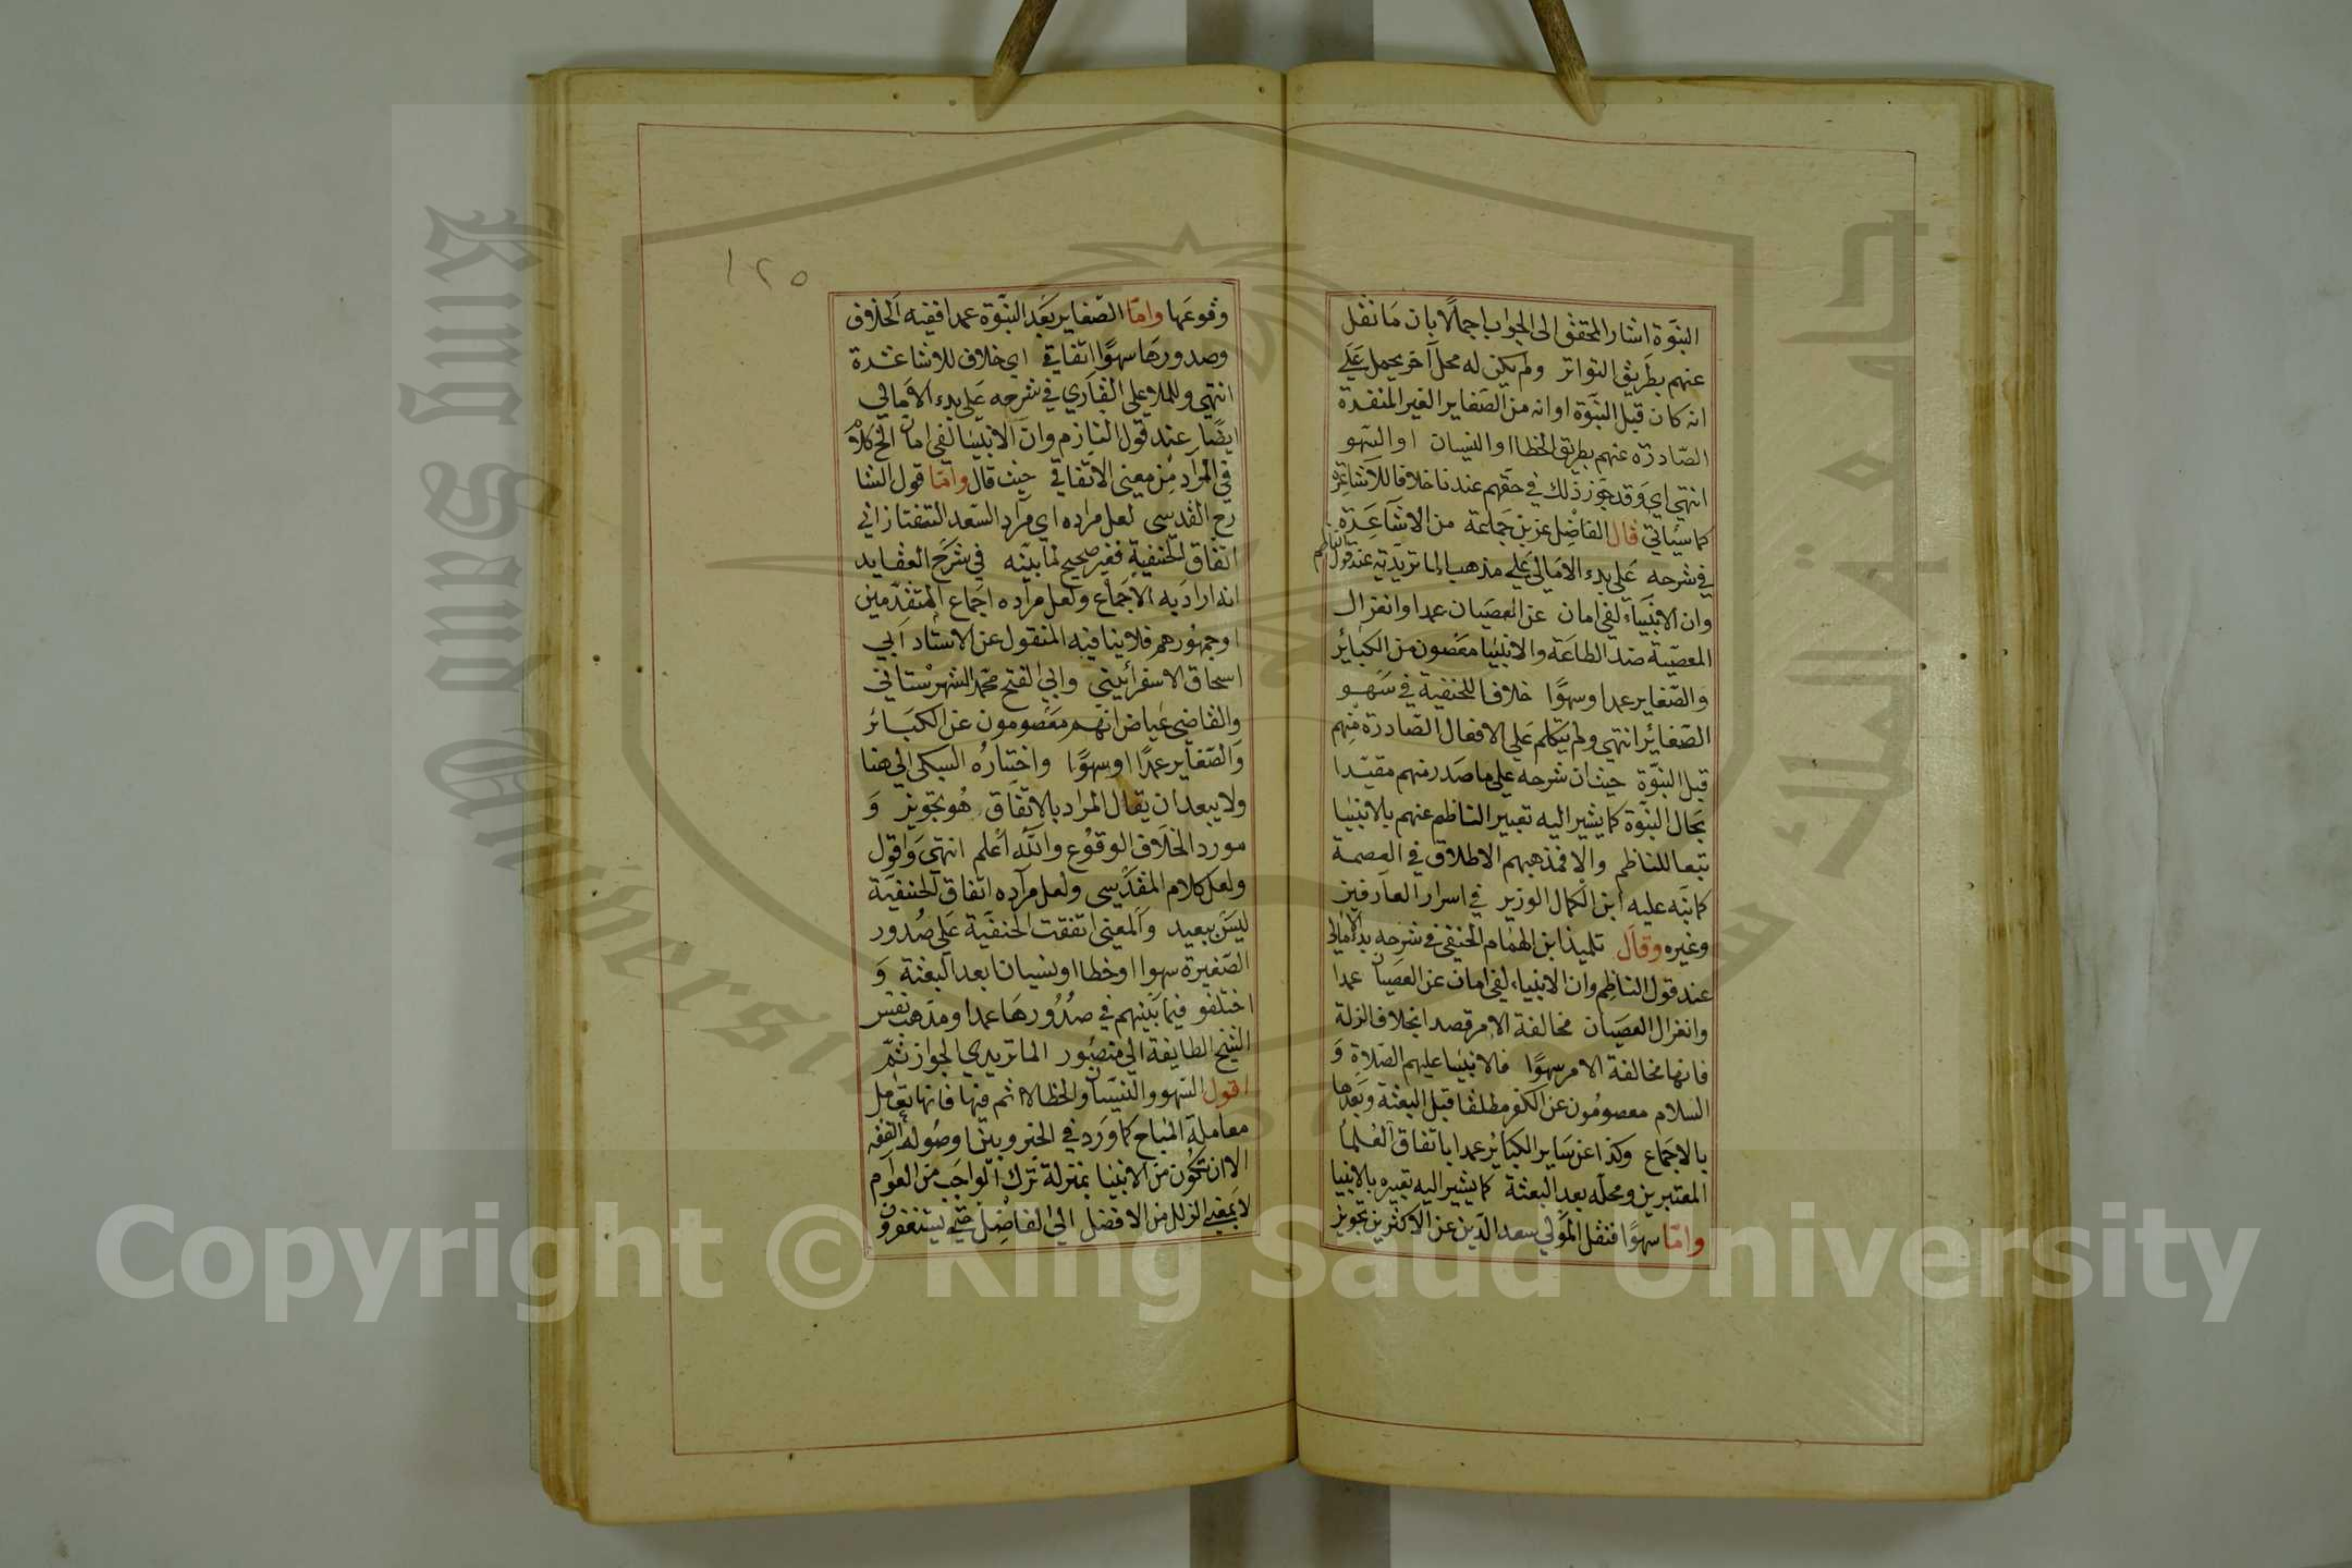 النبوة اشار المحقق الى الجواب اجمالا بان ما نقل
عنهم بطريق التواتر ولم يكن له محل آخر يحمل على
انه كان قبل النبوة او انه من الصغاير الغير المنفدة
الصادرة عنهم بطريق الخطا او النسيان او السهو
انتهى اي وقد جوز ذلك في حقهم عندنا خلافا للاشاعرة
كما سيأتي قال الفاضل عز بن جماعة من الاشاعرة
في شرحه على بدء الامالي على مذهب الماتريدية عند قول الناظم
وان الانبياء لفي امان عن العصيان عمدا وانعزال
المعصية ضد الطاعة والانبيا معصون من الكبائر
والصغاير عمدا وسهوا خلافا للحنفية في سهو
الصغائر انتهى ولم يتكلم على الافعال الصادرة منهم
قبل النبوة حيث ان شرحه على ما صدر منهم مقيدا
بحال النبوة كما يشير اليه تعبير الناظم عنهم بالانبيا
تبعا للناظم والا فمذهبهم الاطلاق في العصمة
كما نبه عليه ابن الكمال الوزير في اسرار العارفين
وغيره وقال تلميذ ابن الهمام الحنفي في شرحه بدء الامالي
عند قول الناظم وان الانبياء لفي امان عن العصيان عمدا
وانعزال العصيان مخالفة الامر قصدا بخلاف الزلة
فانها مخالفة الامر سهوا فالانبيا عليهم الصلاة و
السلام معصومون عن الكفر مطلقا قبل البعثة وبعدها
بالاجماع وكذا عن ساير الكبائر عمدا باتفاق العلما
المعتبرين ومحله بعد البعثة كما يشير اليه تعبيره بالانبيا
واما سهوا فنقل المولى سعد الدين عن الاكثرين تجويز
١٢٥
وقوعها واما الصغاير بعد النبوة عمدا ففيه الخلاف
وصدورها سهوا اتفاقي اي خلاف للاشاعرة
انتهى وللملا علي القاري في شرحه على بدء الامالي
ايضا عند قول النازم وان الانبيا لفي امان الخ كلام
في المراد من معنى الاتفاقي حيث قال واما قول الشا
رح القدسي لعل مراده اي مراد السعد التفتازاني
اتفاق الحنفية فغير صحيح لما بينه في شرح العقايد
انه اراد به الاجماع ولعل مراده اجماع المتقدمين
او جمهورهم فلا ينافيه المنقول عن الاستاد ابي
اسحاق الاسفرائيني وابي الفتح محمد الشهرستاني
والقاضي عياض انهم معصومون عن الكبائر
والصغاير عمدا او سهوا واختاره السبكي الى هنا
ولا يبعد ان يقال المراد بالاتفاق هو تجويز و
مورد الخلاف الوقوع والله اعلم انتهى واقول
ولعل كلام المقدسي ولعل مراده اتفاق الحنفية
ليس ببعيد والمعنى اتفقت الحنفية على صدور
الصغيرة سهوا او خطا او نسيانا بعد البعثة و
اختلفو فيما بينهم في صدورها عمدا ومذهب نفس
الشيخ الطايفة ابي منصور الماتريدي الجواز ثم
اقول السهو والنسيان والخطا لا اثم فيها فانها تعامل
معاملة المباح كما ورد في الخبر وبين اوصوله الفقه
الا ان تكون من الانبيا بمنزلة ترك الواجب من العوام
لا بمعنى الزلل من الافضل الى الفاضل حتى يستغفرون
Copyright © King Saud University
King Saud University
جامعة الملك سعود